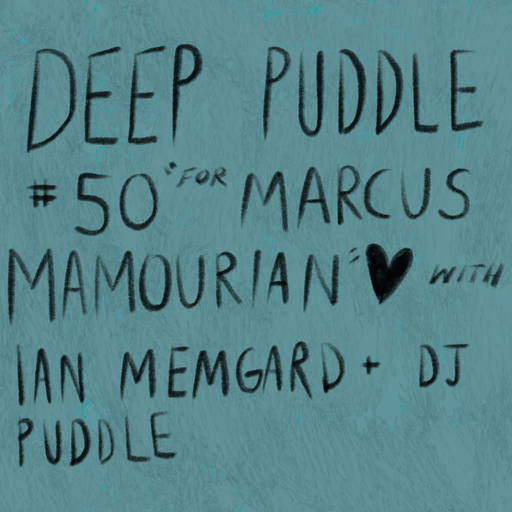 DEEP PUDDLE
#50 "FOR MARCUS
MAMOURIAN" ♥ WITH
IAN MEMGARD + DJ
PUDDLE